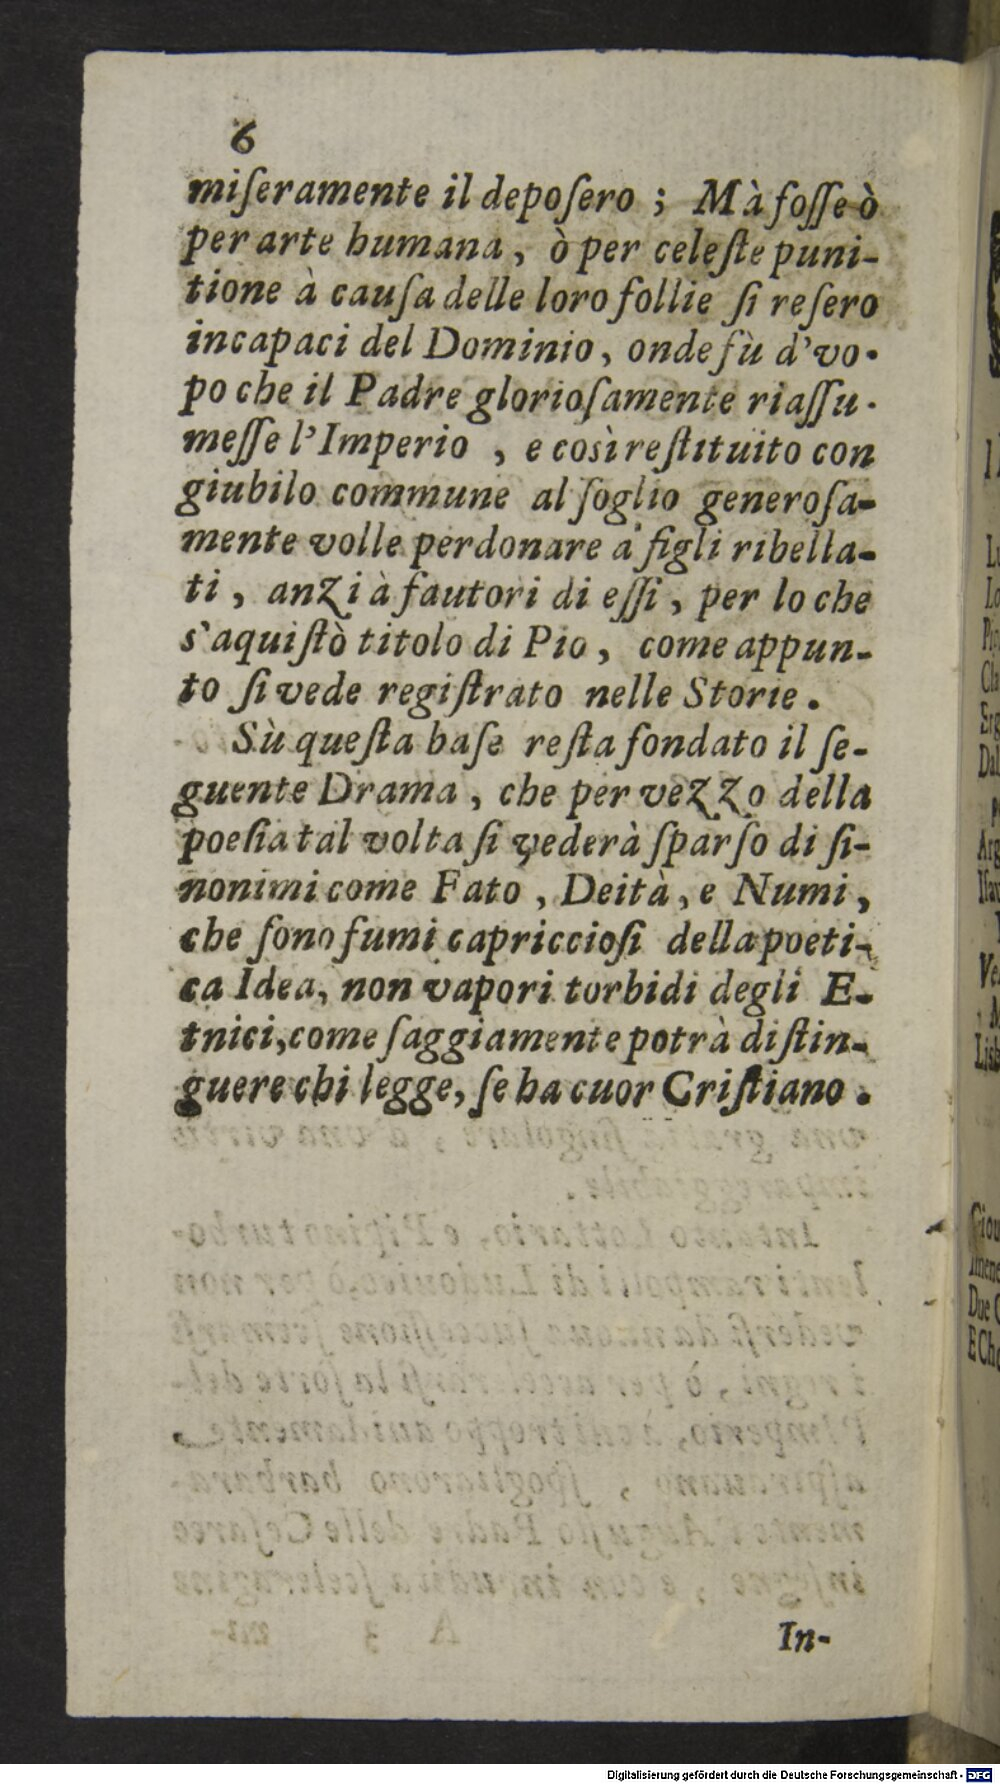 6
miſeramente il depoſero ; Mà foſſe ò
per arte humana, ò per celeſte puni-
tione à cauſa delle loro follie ſi reſero
incapaci del Dominio, onde fù d'vo-
po che il Padre glorioſamente riaſſu-
meſſe l'Imperio , e così reſtituito con
giubilo commune al ſoglio generoſa-
mente volle perdonare a' figli ribella-
ti , anzi à fautori di eſſi, per lo che
s'aquiſtò titolo di Pio, come appun-
to ſi vede regiſtrato nelle Storie.
Sù queſta baſe reſta fondato il ſe-
guente Drama, che per vezzo della
poeſia tal volta ſi vederà ſparſo di ſi-
nonimi come Fato, Deità, e Numi,
che ſono fumi capriccioſi della poeti-
ca Idea, non vapori torbidi degli E-
tnici, come ſaggiamente potrà diſtin-
guere chi legge, ſe ha cuor Criſtiano.
In-
Digitalisierung gefördert durch die Deutsche Forschungsgemeinschaft - DFG